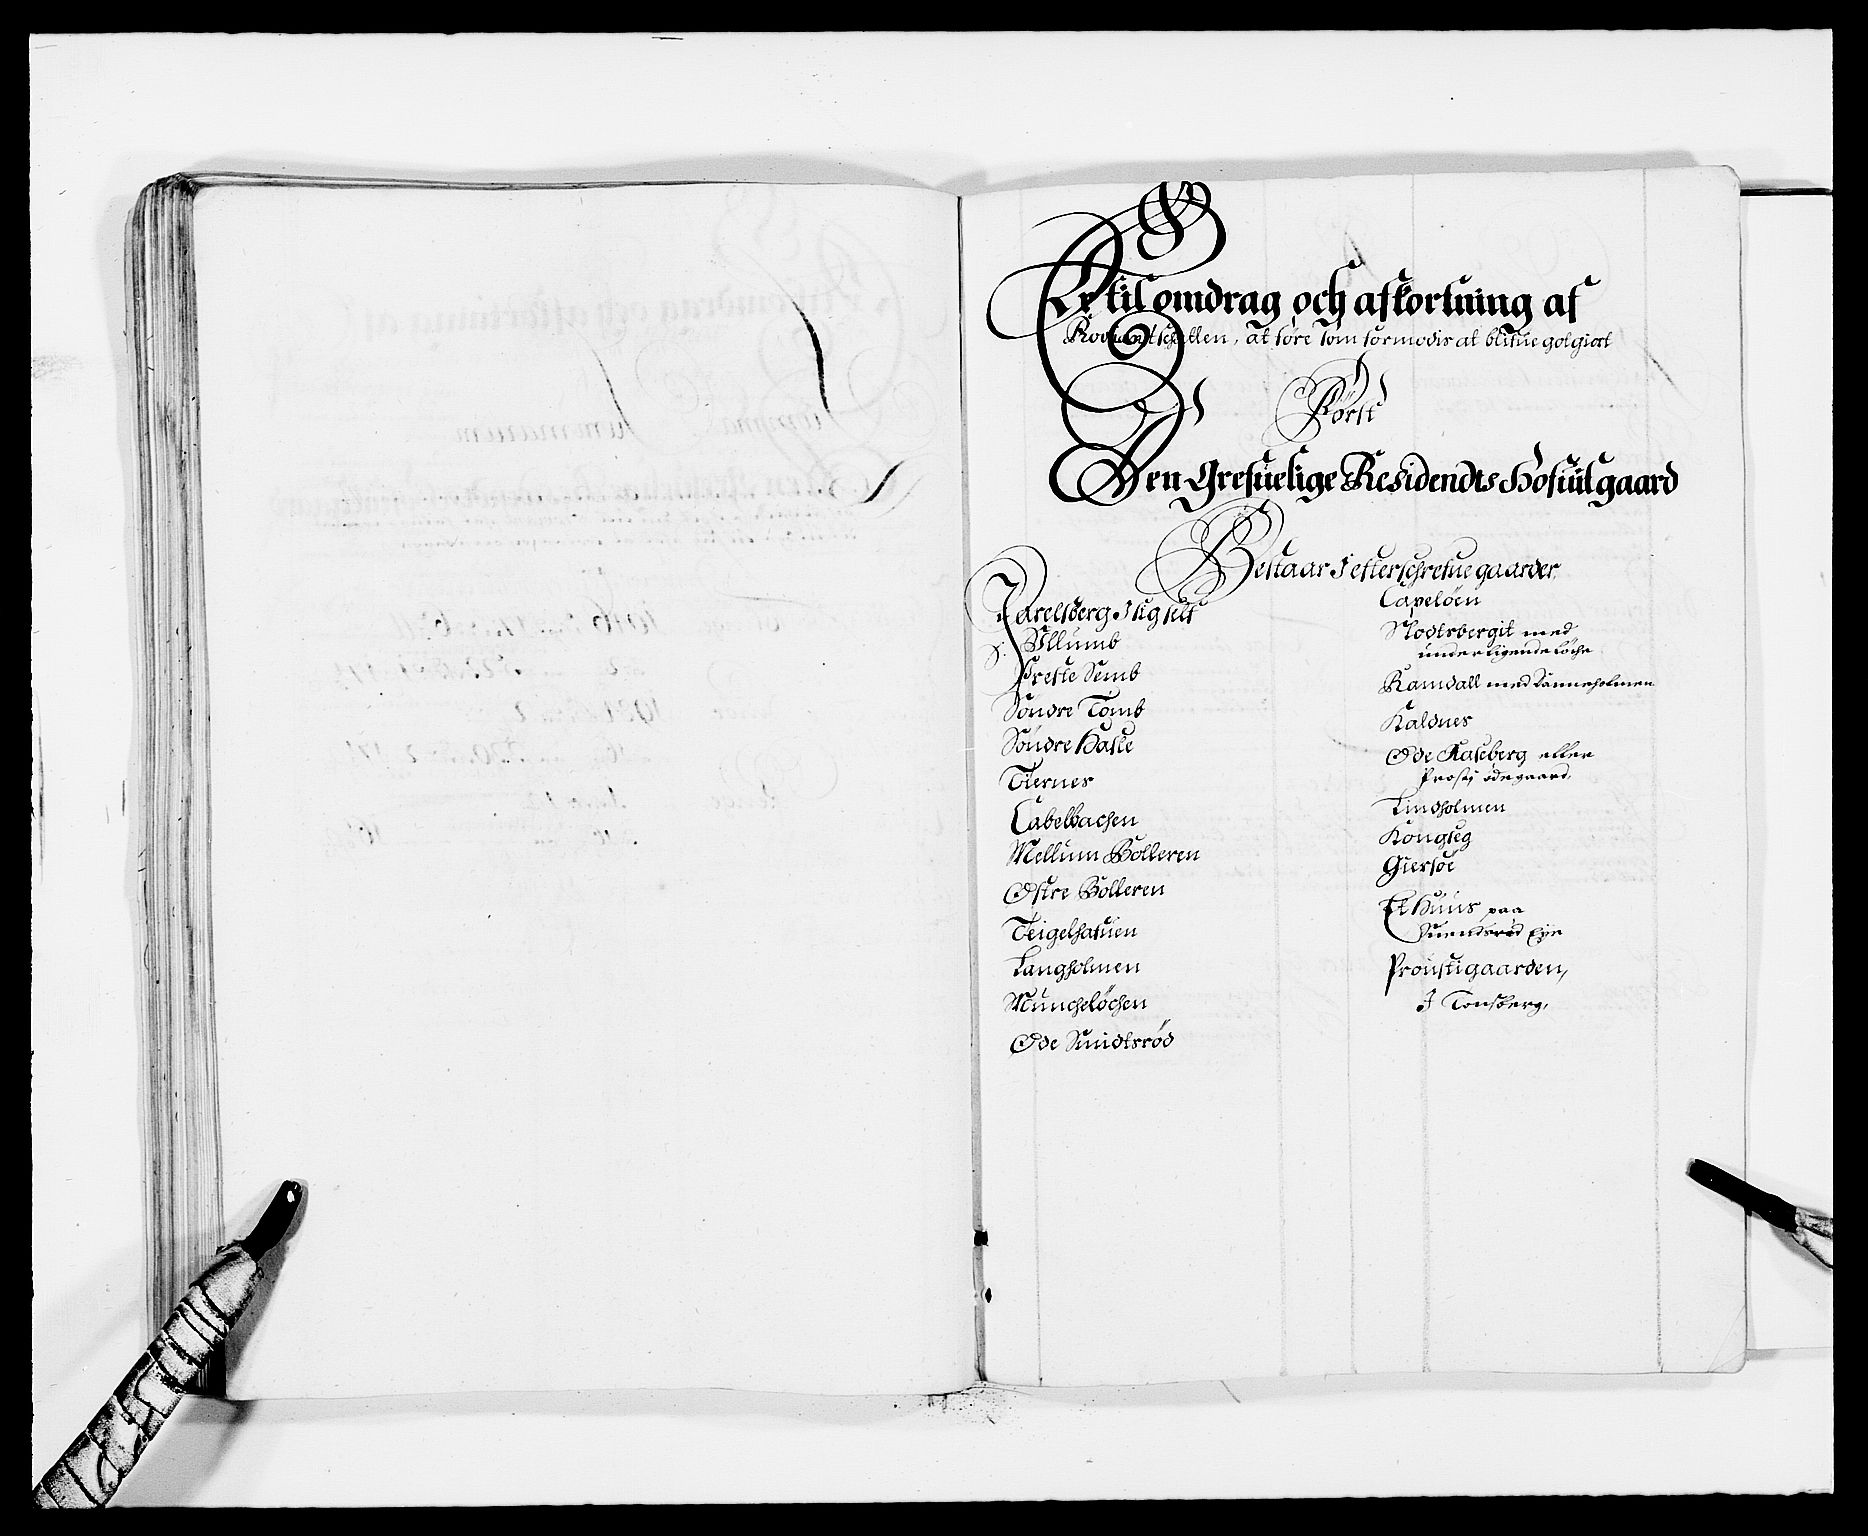 Er til omdrag och afkortning af
at føre som formodis at blifue godgiort
Først
Den Grefuelige Residendts Hofuitgaard
Bestaar J efterschrefne gaarder
Jarelsberg Jsig self
Jllumb
Preste Semb
Søndre Tomb
Søndre Hasle
Tiernes
Cabelbachen
Mellum Bolleren
Østre Bolleren
Teigelhafuen
Langholmen
Muncheløchen
Øde Smidtsrød
Capeløen
Slodtsbergit med
underligende Løche
Ramdall med Kanneholmen
Kaldnes
Øde Raseberg eller
Profz ødegaard
Lindholmen
Kongseg
Giersøe
Et Huus paa
Suendsrød Eje
Proustigaarden,
J Tonsberg,